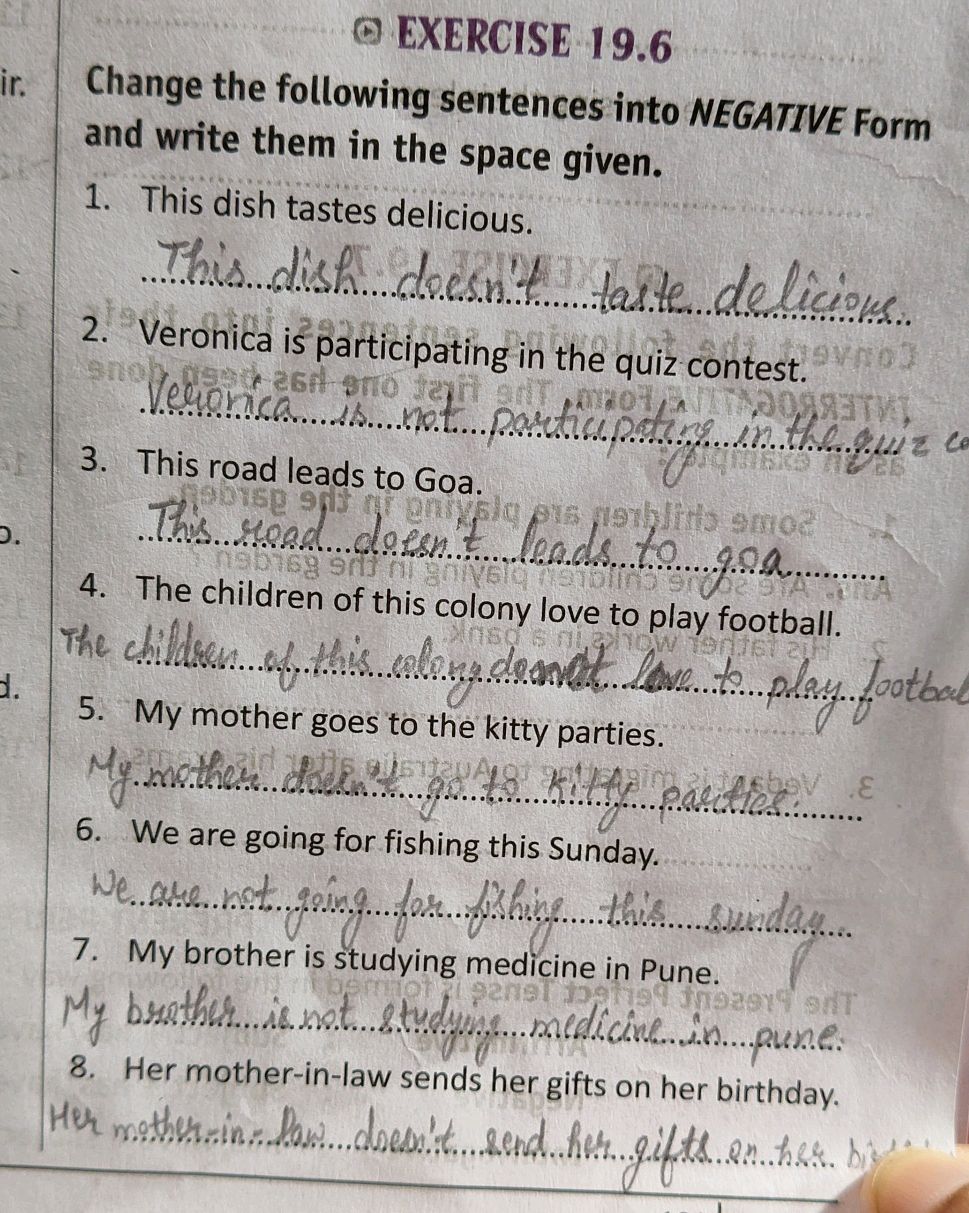 EXERCISE 19.6
ir.
Change the following sentences into NEGATIVE Form
and write them in the space given.
1. This dish tastes delicious.
This dish doesn't taste delicious.
2. Veronica is participating in the quiz contest.
Veronica is not participating in the quiz co
3. This road leads to Goa.
This road doesn't leads to goa
4. The children of this colony love to play football.
The children of this colony love to play footbal
d.
5. My mother goes to the kitty parties.
My mother doesn't go to kitty parties.
6. We are going for fishing this Sunday.
We are not going for fishing this sunday
7. My brother is studying medicine in Pune.
My brother is not studying medicine in pune.
8. Her mother-in-law sends her gifts on her birthday.
Her mother-in-law doesn't send her gifts on her